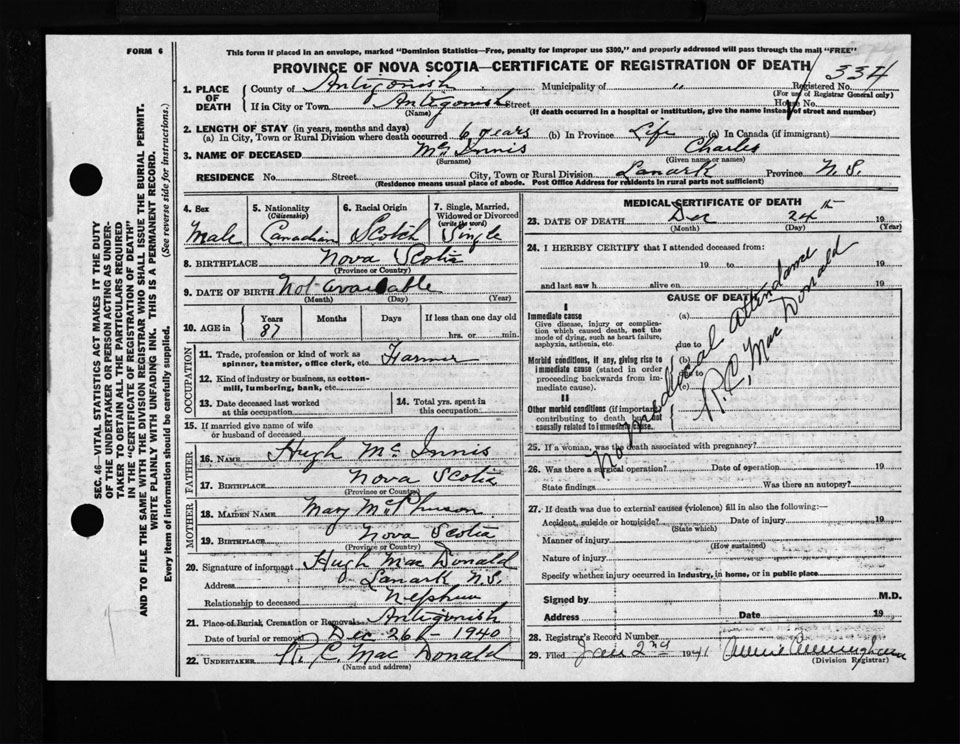 FORM 6
This form if placed in an envelope, marked "Dominion Statistics—Free, penalty for improper use $300," and properly addressed will pass through the mail "FREE"
PROVINCE OF NOVA SCOTIA—CERTIFICATE OF REGISTRATION OF DEATH
1. PLACE OF DEATH
County of Antigonish Municipality of " Registered No. 334
(For use of Registrar General only)
If in City or Town Antigonish Street House No.
(Name) (If death occurred in a hospital or institution, give the name instead of street and number)
2. LENGTH OF STAY (in years, months and days)
(a) In City, Town or Rural Division where death occurred 6 years (b) In Province Life (c) In Canada (if immigrant)
3. NAME OF DECEASED Mc Innis Charles
(Surname) (Given name or names)
RESIDENCE No. Street City, Town or Rural Division Lanark Province N.S.
(Residence means usual place of abode. Post Office Address for residents in rural parts not sufficient)
4. Sex Male
5. Nationality (Citizenship) Canadian
6. Racial Origin Scotch
7. Single, Married, Widowed or Divorced (write the word) Single
8. BIRTHPLACE Nova Scotia
(Province or Country)
9. DATE OF BIRTH Not available
(Month) (Day) (Year)
10. AGE in Years Months Days If less than one day old
87 hrs. or min.
OCCUPATION
11. Trade, profession or kind of work as spinner, teamster, office clerk, etc. Farmer
12. Kind of industry or business, as cotton-mill, lumbering, bank, etc.
13. Date deceased last worked at this occupation
14. Total yrs. spent in this occupation
15. If married give name of wife or husband of deceased
FATHER
16. NAME Hugh Mc Innis
17. BIRTHPLACE Nova Scotia
(Province or Country)
MOTHER
18. MAIDEN NAME Mary
19. BIRTHPLACE Nova Scotia
(Province or Country)
20. Signature of informant Hugh Mac Donald
Address Lanark N.S.
Relationship to deceased Nephew
21. Place of Burial, Cremation or Removal Antigonish
Date of burial or removal Dec 26 - 1940
22. UNDERTAKER R. C. Mac Donald
(Name and address)
MEDICAL CERTIFICATE OF DEATH
23. DATE OF DEATH Dec 24th 19
(Month) (Day) (Year)
24. I HEREBY CERTIFY that I attended deceased from:
19 to 19
and last saw h alive on 19
CAUSE OF DEATH
I
Immediate cause (a)
Give disease, injury or complication which caused death, not the mode of dying, such as heart failure, asphyxia, asthenia, etc.
due to
Morbid conditions, if any, giving rise to immediate cause (stated in order proceeding backwards from immediate cause).
(b)
due to
(c)
II
Other morbid conditions (if important) contributing to death but not causally related to immediate cause.
No medical attendance
R. C. Mac Donald
25. If a woman, was the death associated with pregnancy?
26. Was there a surgical operation? Date of operation 19
State findings Was there an autopsy?
27. If death was due to external causes (violence) fill in also the following:—
Accident, suicide or homicide? Date of injury 19
(State which)
Manner of injury
(How sustained)
Nature of injury
Specify whether injury occurred in industry, in home, or in public place
Signed by M.D.
Address Date 19
28. Registrar's Record Number
29. Filed Jan 2nd 1941 Annie Cunningham
(Division Registrar)
SEC. 46—VITAL STATISTICS ACT MAKES IT THE DUTY
OF THE UNDERTAKER OR PERSON ACTING AS UNDER-
TAKER TO OBTAIN ALL THE PARTICULARS REQUIRED
IN THE "CERTIFICATE OF REGISTRATION OF DEATH"
AND TO FILE THE SAME WITH THE DIVISION REGISTRAR WHO SHALL ISSUE THE BURIAL PERMIT.
WRITE PLAINLY WITH UNFADING INK. THIS IS A PERMANENT RECORD.
Every item of information should be carefully supplied. (See reverse side for instructions.)